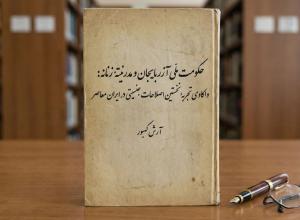 حکومت ملی آذربایجان و مدرنیتهٔ زنانه:
واکاوی تجربهٔ نخستین اصلاحات جنسیتی در ایران معاصر
آرش کمبور